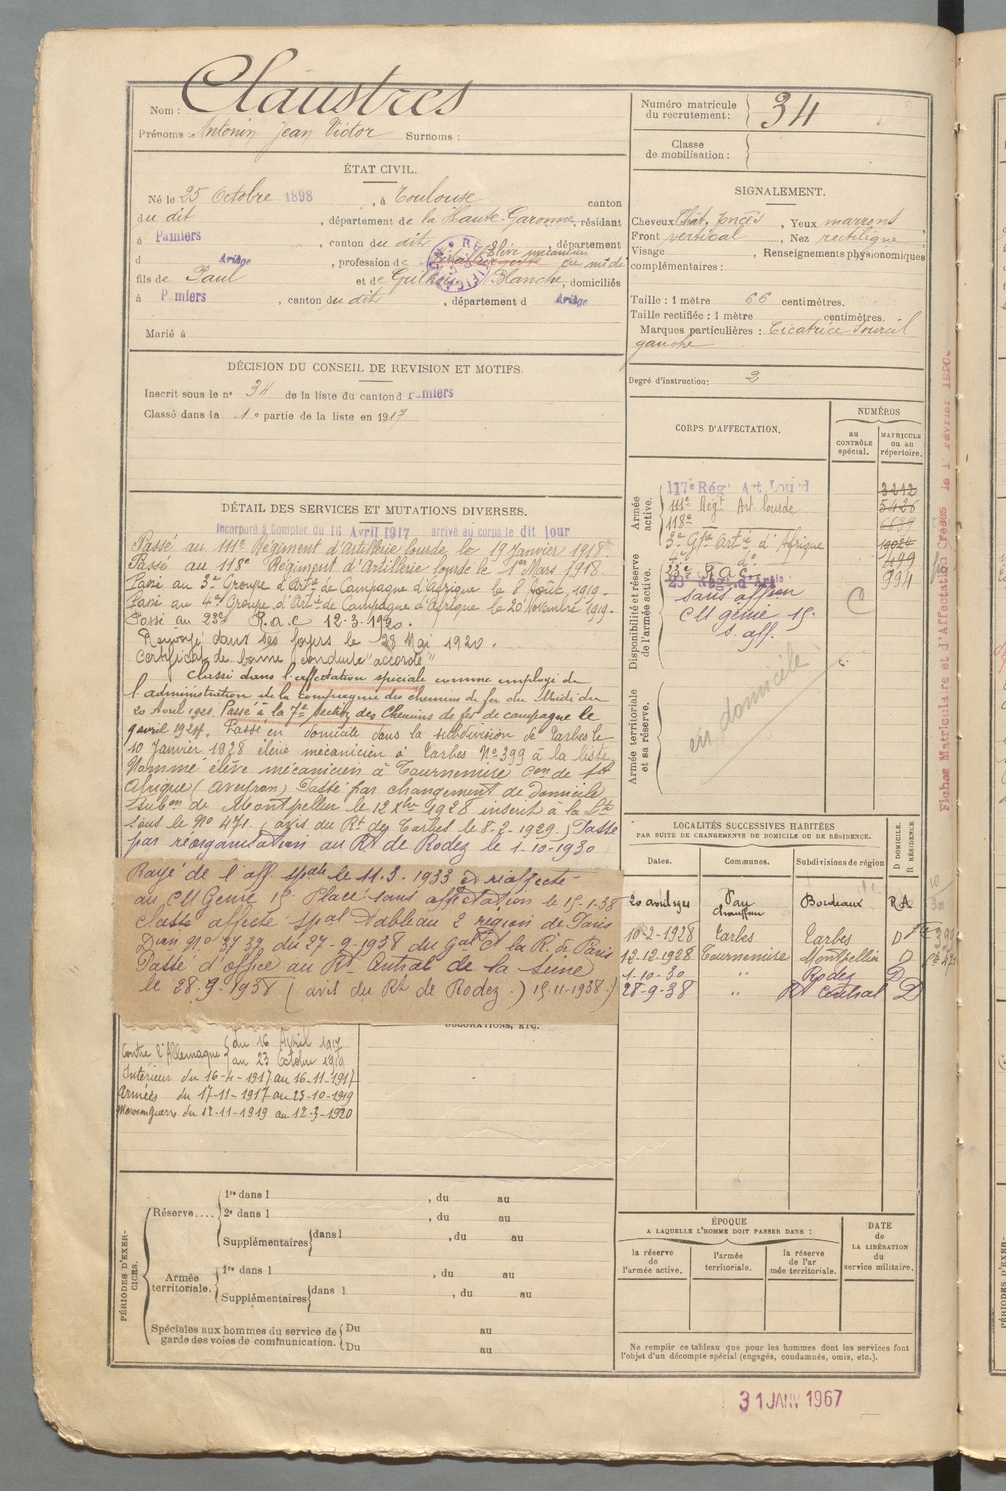 Nom : Claustres
Prénoms : Antonin Jean Victor Surnoms :
Numéro matricule du recrutement : 34
Classe de mobilisation :
ÉTAT CIVIL.
Né le 25 Octobre 1898, à Toulouse canton
du dit, département de la Haute-Garonne, résidant
à Pamiers, canton du dit, département
d Ariège, profession de élève mécanicien
fils de Paul et de Blanche, domiciliés
à Pamiers, canton du dit, département d Ariège
Marié à
SIGNALEMENT.
Cheveux Chat. foncés, Yeux marrons
Front vertical, Nez rectiligne
Visage, Renseignements physionomiques
complémentaires :
Taille : 1 mètre 66 centimètres.
Taille rectifiée : 1 mètre centimètres.
Marques particulières : Cicatrice Sourcil
gauche
Degré d'instruction : 2
DÉCISION DU CONSEIL DE REVISION ET MOTIFS.
Inscrit sous le nº 34 de la liste du canton d Pamiers
Classé dans la 1e partie de la liste en 1917
DÉTAIL DES SERVICES ET MUTATIONS DIVERSES.
Incorporé à Compter du 16 Avril 1917 arrivé au corps le dit jour
Passé au 111e Régiment d'Artillerie lourde le 19 Janvier 1918.
Passé au 118e Régiment d'Artillerie lourde le 1er Mars 1918.
Passé au 3e Groupe d'Artie de Campagne d'Afrique le 8 Août 1919.
Passé au 4e Groupe d'Artie de Campagne d'Afrique le 20 Novembre 1919.
Passé au 23e R.a.c 12-3-1920.
Renvoyé dans ses foyers le 28 Mai 1920.
Certificat de bonne conduite "accordé"
Classé dans l'affectation spéciale comme employé de
l'administration de la compagnie des chemins de fer du Midi du
20 Avril 1921. Passé à la 7e Section des Chemins de fer de campagne le
9 avril 1924. Passé en domicile dans la subdivision de Tarbes le
10 Janvier 1928 élève mécanicien à Tarbes Nº 399 à la liste
Nommé élève mécanicien à Tournemire Con de St
Afrique (Aveyron) Passé par changement de domicile
Subon de Montpellier le 12 Xbre 1928 inscrit à la Ste
sous le Nº 471 (avis du Rt de Tarbes le 8-2-1929.) Passé
par réorganisation au Rt de Rodez le 1-10-1930
Rayé de l'aff. spale le 11-3-1933 et réaffecté
au CM Génie 15 Placé sans affectation le 15-1-38
Passé affecté spal Tableau 2 région de Paris
Don Nº 3732 du 27-9-1938 du Gal Ct la R. de Paris
Passé d'office au Rt Central de la Seine
le 28-9-1938 (avis du Rt de Rodez.) 15-11-1938.)
DÉCORATIONS, ETC.
Contre l'Allemagne { du 16 Avril 1917
au 23 Octobre 1919
Intérieur du 16-4-1917 au 16-11-1917
Armées du 17-11-1917 au 23-10-1919
Maroc en guerre du 12-11-1919 au 12-3-1920
CORPS D'AFFECTATION.
NUMÉROS
au CONTRÔLE spécial.
MATRICULE ou au répertoire.
Armée active.
117e Régt Art Lourd 3212
111e Régt Art. lourde 5426
118e
3e Gpe Artie d'Afrique
4e do 499
23e R.a.c. 994
Disponibilité et réserve de l'armée active.
23e Régt d'Artie
Sans affon
CM génie 15
S. aff.
C
Armée territoriale et sa réserve.
en domicile
LOCALITÉS SUCCESSIVES HABITÉES
PAR SUITE DE CHANGEMENTS DE DOMICILE OU DE RÉSIDENCE.
Dates. Communes. Subdivisions de région D DOMICILE. R RÉSIDENCE
20 avril 1921 Pau Bordeaux R A
chauffeur
10-2-1928 Tarbes Tarbes D
12-12-1928 Tournemire Montpellier D
1-10-30 " Rodez D
28-9-38 " Rt Central D
Fiches Matriculaire et d'Affectation Créées le 1er Février 1920.
PÉRIODES D'EXERCICES.
Réserve....
1re dans l , du au
2e dans l , du au
Supplémentaires dans l , du au
Armée territoriale.
1re dans l , du au
Supplémentaires dans l , du au
Spéciales aux hommes du service de garde des voies de communication.
Du au
Du au
ÉPOQUE
A LAQUELLE L'HOMME DOIT PASSER DANS :
la réserve de l'armée active.
l'armée territoriale.
la réserve de l'armée territoriale.
DATE de LA LIBÉRATION du service militaire.
Ne remplir ce tableau que pour les hommes dont les services font
l'objet d'un décompte spécial (engagés, condamnés, omis, etc.).
31 JANV 1967